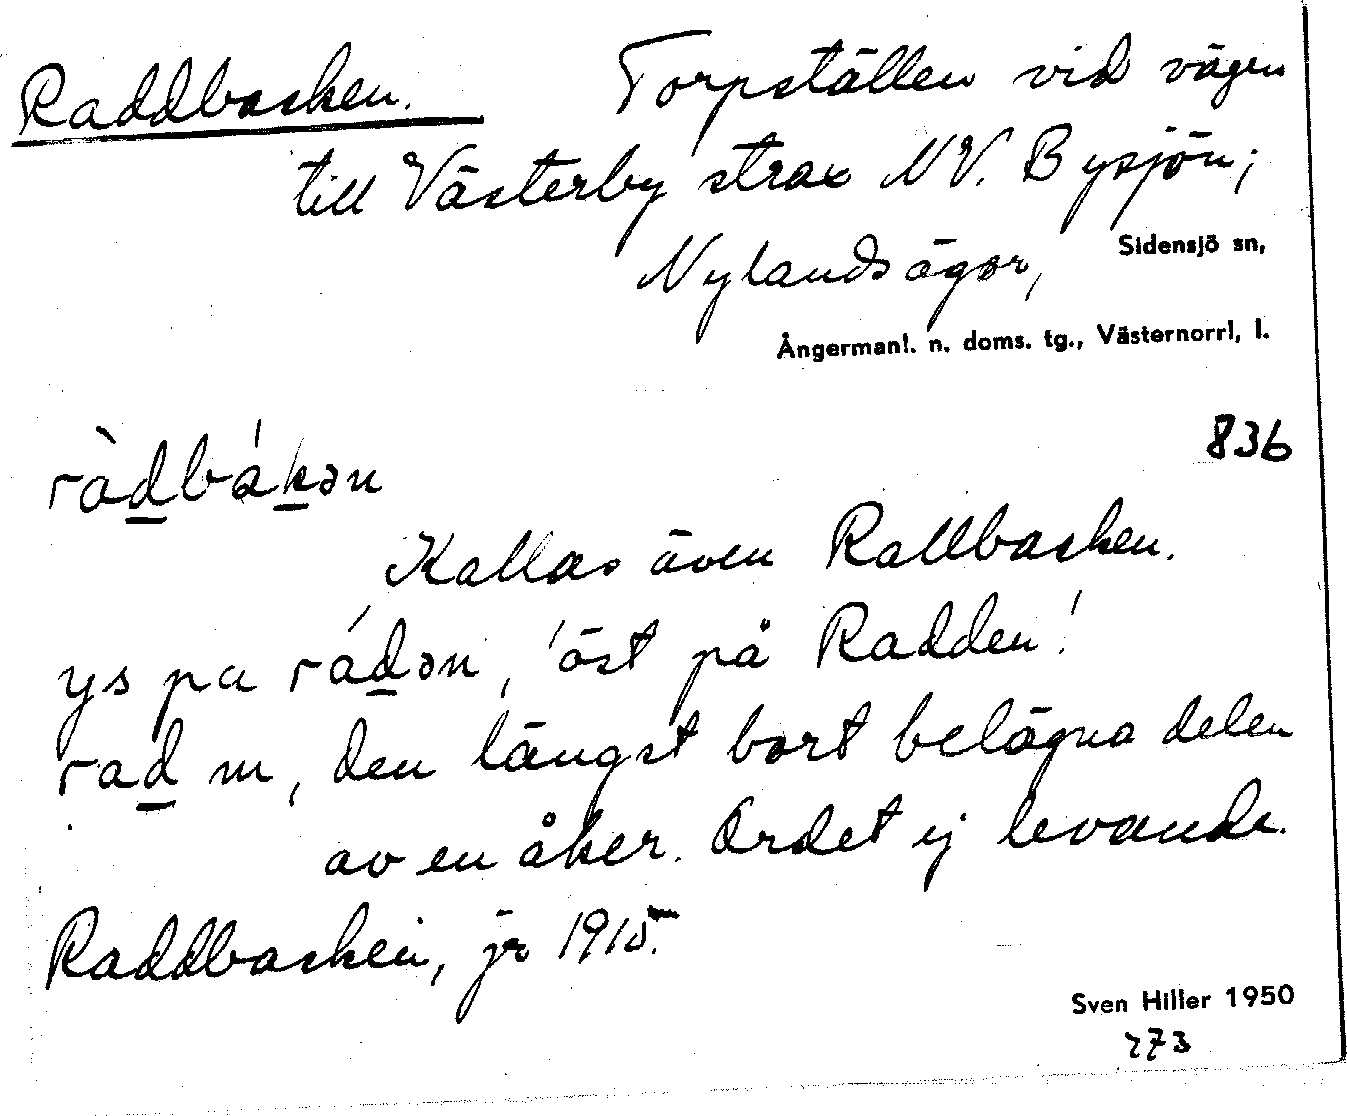 Raddbacken. Torpställen vid vägen
till Västerby strax NV. Bysjön;
Nylands ägor, Sidensjö sn,
Ångermanl. n. doms. tg., Västernorrl, l.
836
ràd̲bák̲ən
Kallas även Rallbacken.
ys pa rád̲ən, 'öst på Radden'
rad̲ m, den längst bort belägna delen
av en åker. Ordet ej levande.
Raddbacken, jr 1915.
Sven Hiller 1950
273